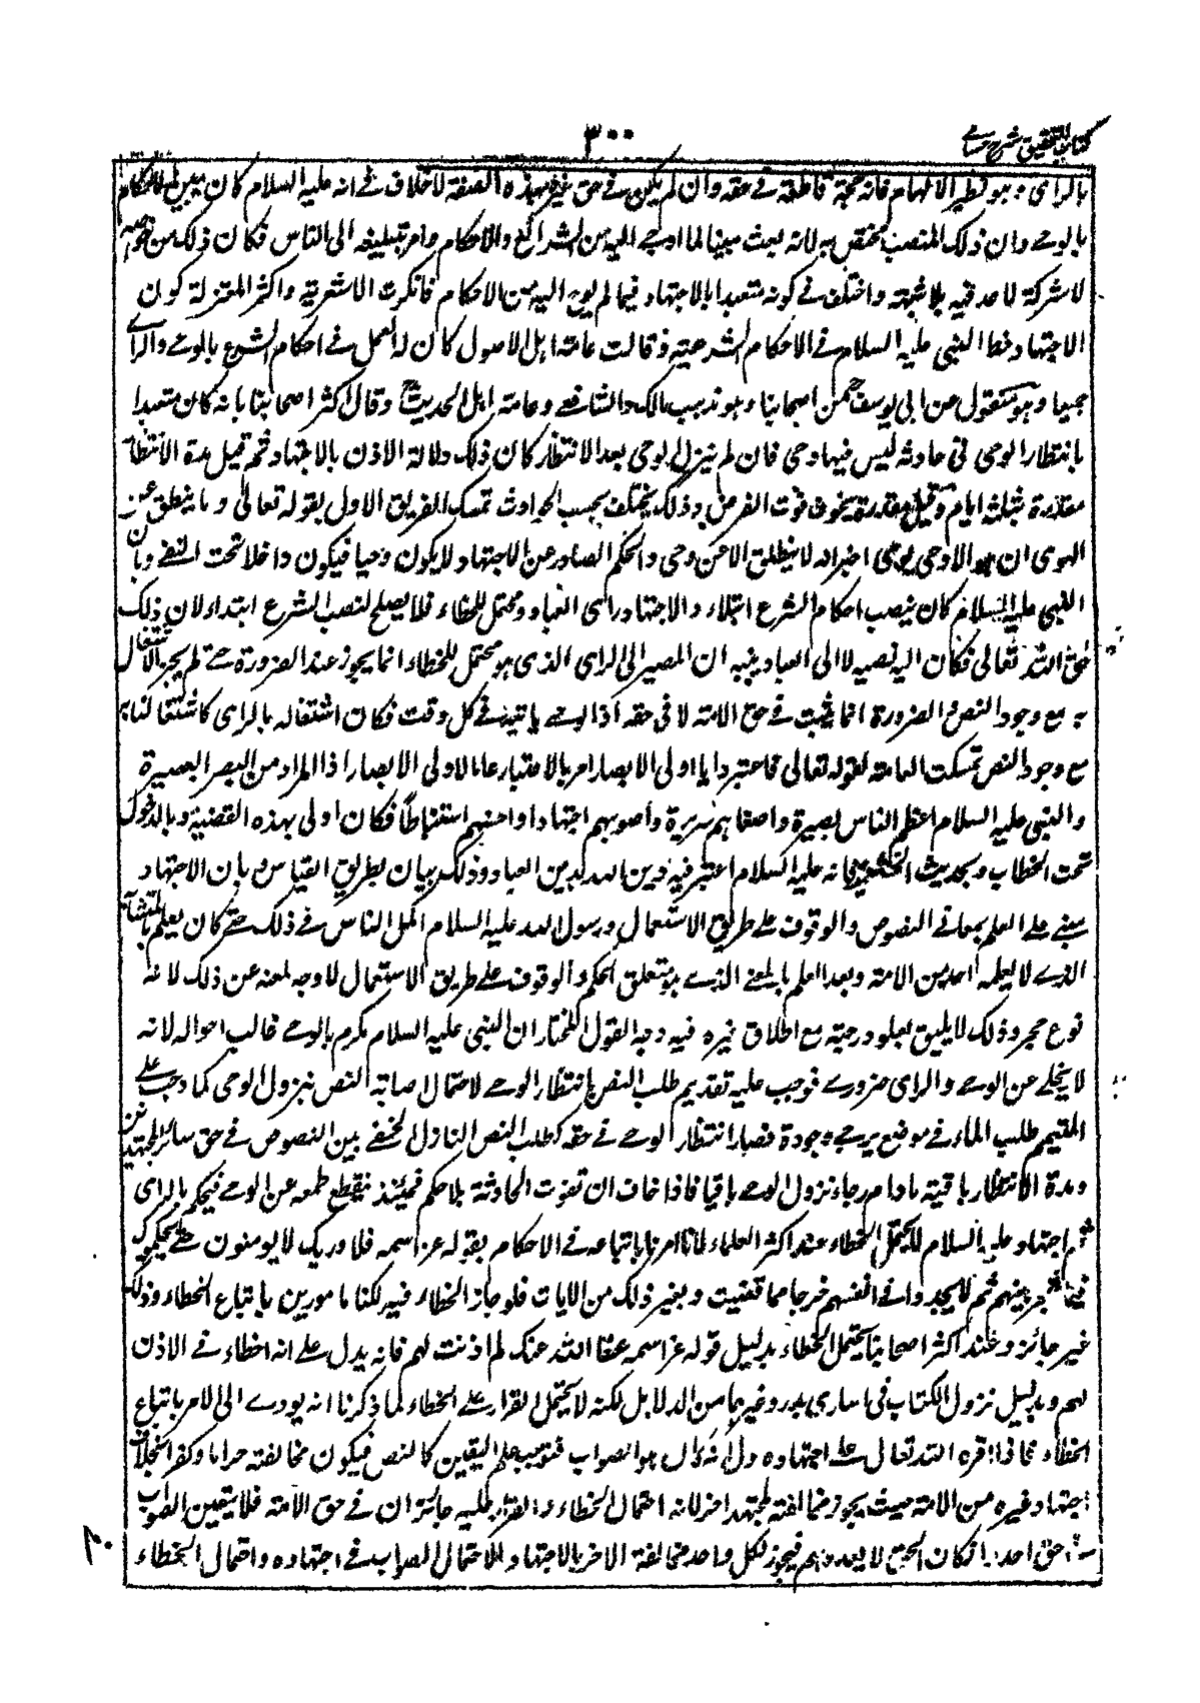 ٣٠٠
كتاب التحقيق شرح حسامي
بالراى وهو نظير الالهام فانه حجة قاطعة فے حقه وان لم يكن فے حق غيره بهذه الصفة لا خلاف فے انه عليه السلام كان يبين الاحكام
بالوحے وان ذلك المنصب يختص به لانه بعث مبينا لما اوحے اليه من الشرائع والاحكام وامر بتبليغه الى الناس فكان ذلك من خواصه
لا شركة لاحد فيه بلا شبهة واختلف فے كونه متعبدا بالاجتهاد فيما لم يوح اليه من الاحكام فانكرت الاشعرية واكثر المعتزلة كون
الاجتهاد حظ النبى عليه السلام فے الاحكام الشرعية وقالت عامة اهل الاصول كان له العمل فے احكام الشرع بالوحے والراے
جميعا وهو منقول عن ابى يوسف من اصحابنا وهو مذهب مالك والشافعے وعامة اهل الحديث وقال اكثر اصحابنا بانه كان متعبدا
بانتظار الوحى فى حادثة ليس فيها وحى فان لم ينزل الوحى بعد الانتظار كان ذلك دلالة الاذن بالاجتهاد ثم قيل مدة الانتظار
مقدرة بثلثة ايام وقيل مقدرة بخوف فوت الغرض وذلك يختلف بحسب الحوادث تمسك الفريق الاول بقوله تعالى وما ينطق عن
الهوى ان هو الا وحى يوحى اخبر انه لا ينطق الا عن وحى والحكم الصادر عن الاجتهاد لا يكون وحيا فيكون داخلا تحت النفے وبان
النبى عليه السلام كان ينصب احكام الشرع ابتداء والاجتهاد راى العباد ومحتمل للخطاء فلا يصلح لنصب الشرع ابتداء لان ذلك
حق الله تعالى فكان اليه نصبه لا الى العباد يبينه ان المصير الى الراى الذى هو محتمل للخطاء انما يجوز عند الضرورة حتے لم يجز الاشتغال
به مع وجود النص والضرورة انما تثبت فے حق الامة لا فى حقه اذ الوحے ياتيه فے كل وقت فكان اشتغاله بالراى كاشتغالنا به
مع وجود النص تمسكت العامة بقوله تعالى فاعتبروا يا اولى الابصار امر بالاعتبار عاما لاولى الابصار اذ المراد من البصر البصيرة
والنبى عليه السلام اعظم الناس بصيرة واصفاهم سريرة واصوبهم اجتهادا واحسنهم استنباطا فكان اولى بهذه القضية وبالدخول
تحت الخطاب وبحديث الخثعمية فانه عليه السلام اعتبر فيه دين الله بدين العباد وذلك بيان بطريق القياس وبان الاجتهاد
مبنے على العلم بمعانى النصوص والوقوف علے طريق الاستعمال ورسول الله عليه السلام اكمل الناس فے ذلك حتے كان يعلم بالمتشابه
الذے لا يعلمه احد من الامة وبعد العلم بالمعنے الذے هو متعلق الحكم والوقوف علے طريق الاستعمال لا وجه لمنعه عن ذلك لانه
نوع حجر وذلك لا يليق بعلو درجته مع اطلاق غيره فيه وجه القول المختار ان النبى عليه السلام مكرم بالوحے غالب احواله لانه
لا يخلے عن الوحے والراى ضرورے فوجب عليه تقديم طلب النص بانتظار الوحے لاحتمال اصابة النص بنزول الوحى كما وجب علے
المقيم طلب الماء فے موضع يرجے وجوده فصار انتظار الوحے فے حقه كطلب النص النازل الخفے بين النصوص فے حق سائر المجتهدين
ومدة الانتظار باقية مادام رجاء نزول الوحے باقيا فاذا خاف ان تفوت الحادثة بلا حكم فحينئذ ينقطع طمعه عن الوحے فيحكم بالراى
ثم اجتهاده عليه السلام لا يحتمل الخطاء عند اكثر العلماء لانا امرنا باتباعه فے الاحكام بقوله عز اسمه فلا وربك لا يومنون حتے يحكموك
فيما شجر بينهم ثم لا يجدوا فے انفسهم حرجا مما قضيت وبغير ذلك من الايات فلو جاز الخطاء فيه لكنا مامورين باتباع الخطاء وذلك
غير جائز وعند اكثر اصحابنا يحتمل الخطاء بدليل قوله عز اسمه عفا الله عنك لم اذنت لهم فانه يدل علے انه اخطاء فے الاذن
لهم وبدليل نزول الكتاب فى اسارى بدر وغيرها من الدلايل لكنه لا يحتمل القرار علے الخطاء لما ذكرنا انه يودے الى الامر باتباع
الخطاء فاذا اقره الله تعالى علے اجتهاده دل انه كان هو الصواب فيوجب علم اليقين كالنص فيكون مخالفته حراما وكفرا بخلاف
اجتهاد غيره من الامة حيث يجوز مخالفة لمجتهد اخر لانه احتمال الخطاء والقرار عليه جائزان فے حق الامة فلا يتعين الصواب
فے حق احد وان كان الحق لا يعدوهم فيجوز لكل واحد مخالفة الاخر بالاجتهاد لاحتمال الصواب فے اجتهاده واحتمال الخطاء